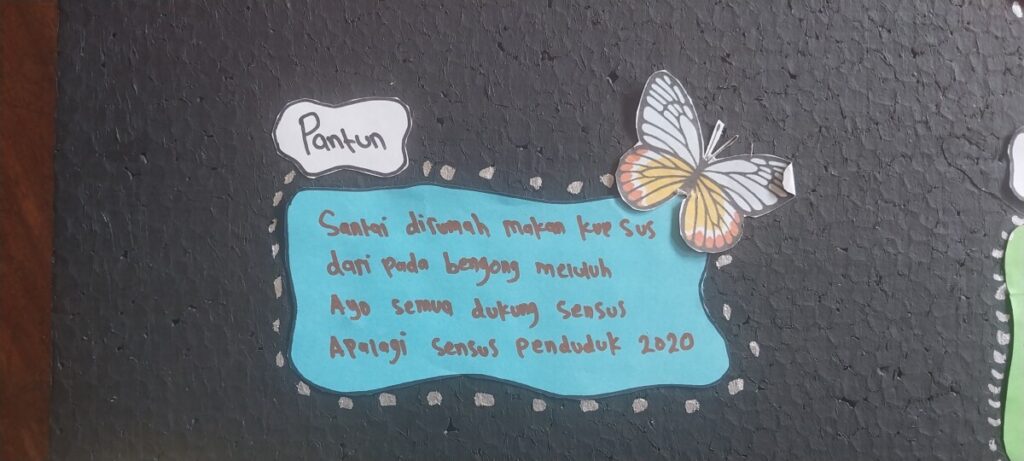 Pantun
Santai dirumah makan kue sus
dari pada bengong meluluh
Ayo semua dukung sensus
Apalagi sensus penduduk 2020